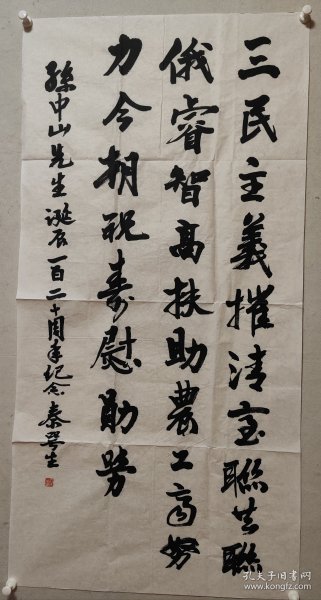 三民主義摧清室聯共聯
俄睿智高扶助農工齊努
力今朝祝壽慰勛勞
孫中山先生誕辰一百二十周年纪念 秦咢生
孔夫子旧书网